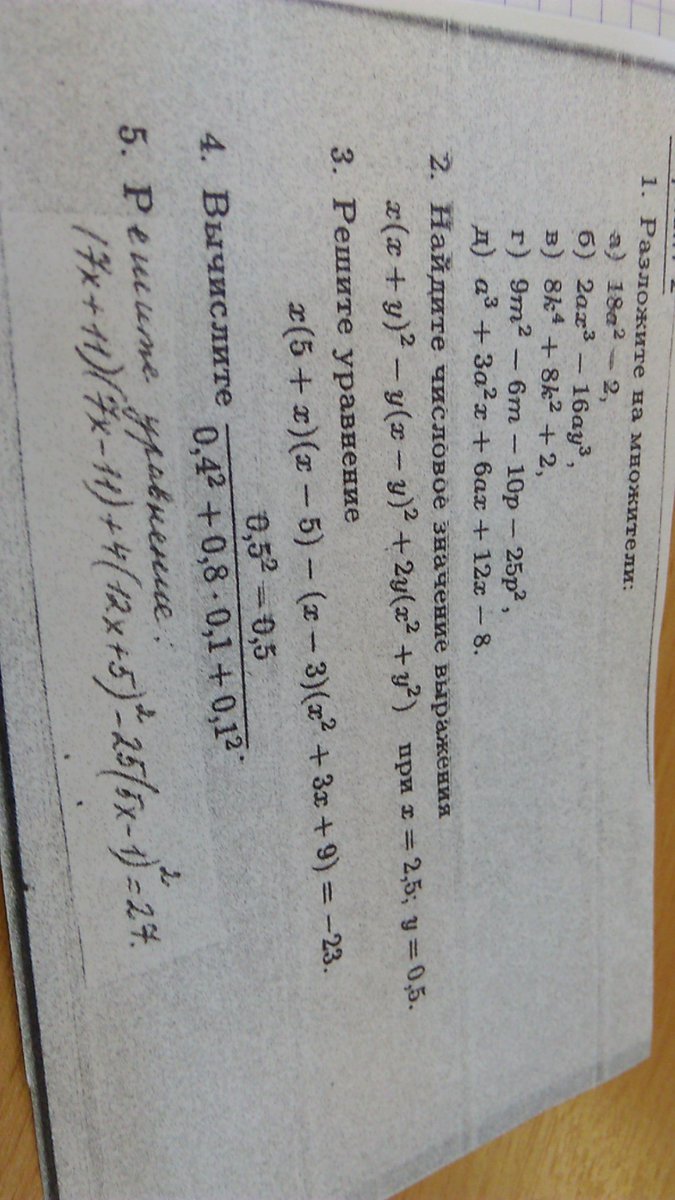 1. Разложите на множители:
а) 18a² − 2,
б) 2ax³ − 16ay³,
в) 8k⁴ + 8k² + 2,
г) 9m² − 6m − 10p − 25p²,
д) a³ + 3a²x + 6ax + 12x − 8.
2. Найдите числовое значение выражения
x(x + y)² − y(x − y)² + 2y(x² + y²) при x = 2,5; y = 0,5.
3. Решите уравнение
x(5 + x)(x − 5) − (x − 3)(x² + 3x + 9) = −23.
4. Вычислите
0,5² = 0,5
0,4² + 0,8 · 0,1 + 0,1².
5. Решите уравнение:
(7x + 11)(7x − 11) + 4(12x + 5)² − 25(5x − 1)² = 27.